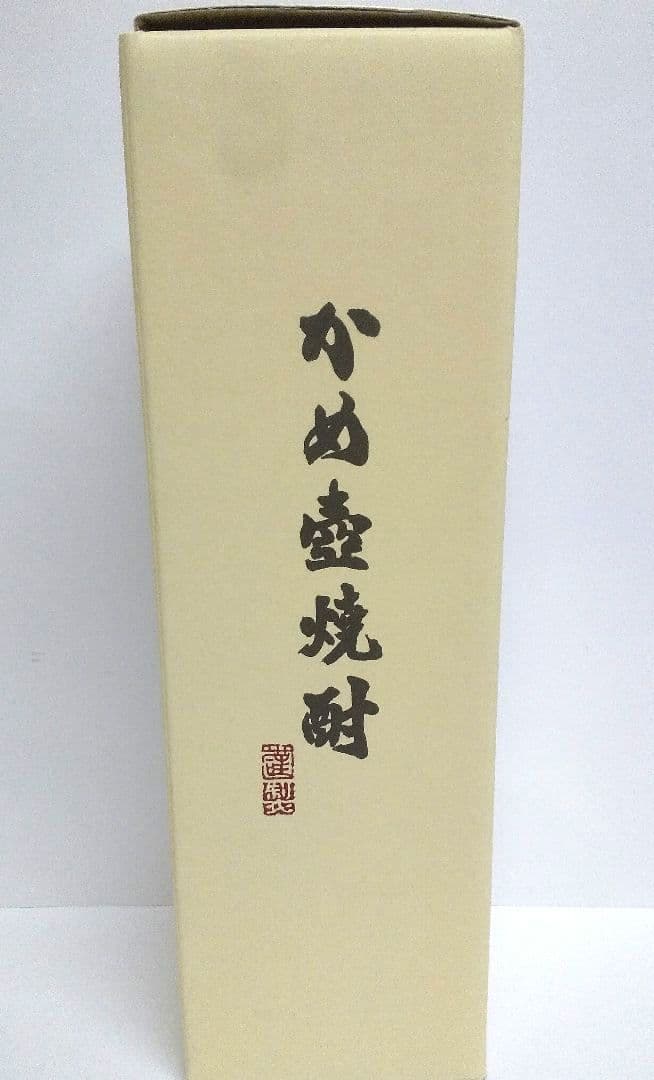 かめ壺焼酎
謹製